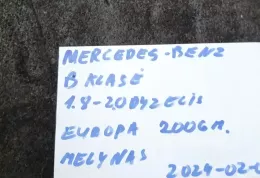 MERCEDES-BENZ
B KLASĖ
1.8-2.0DYZELIS
EUROPA 2006M.
MELYNAS
2024-02-0